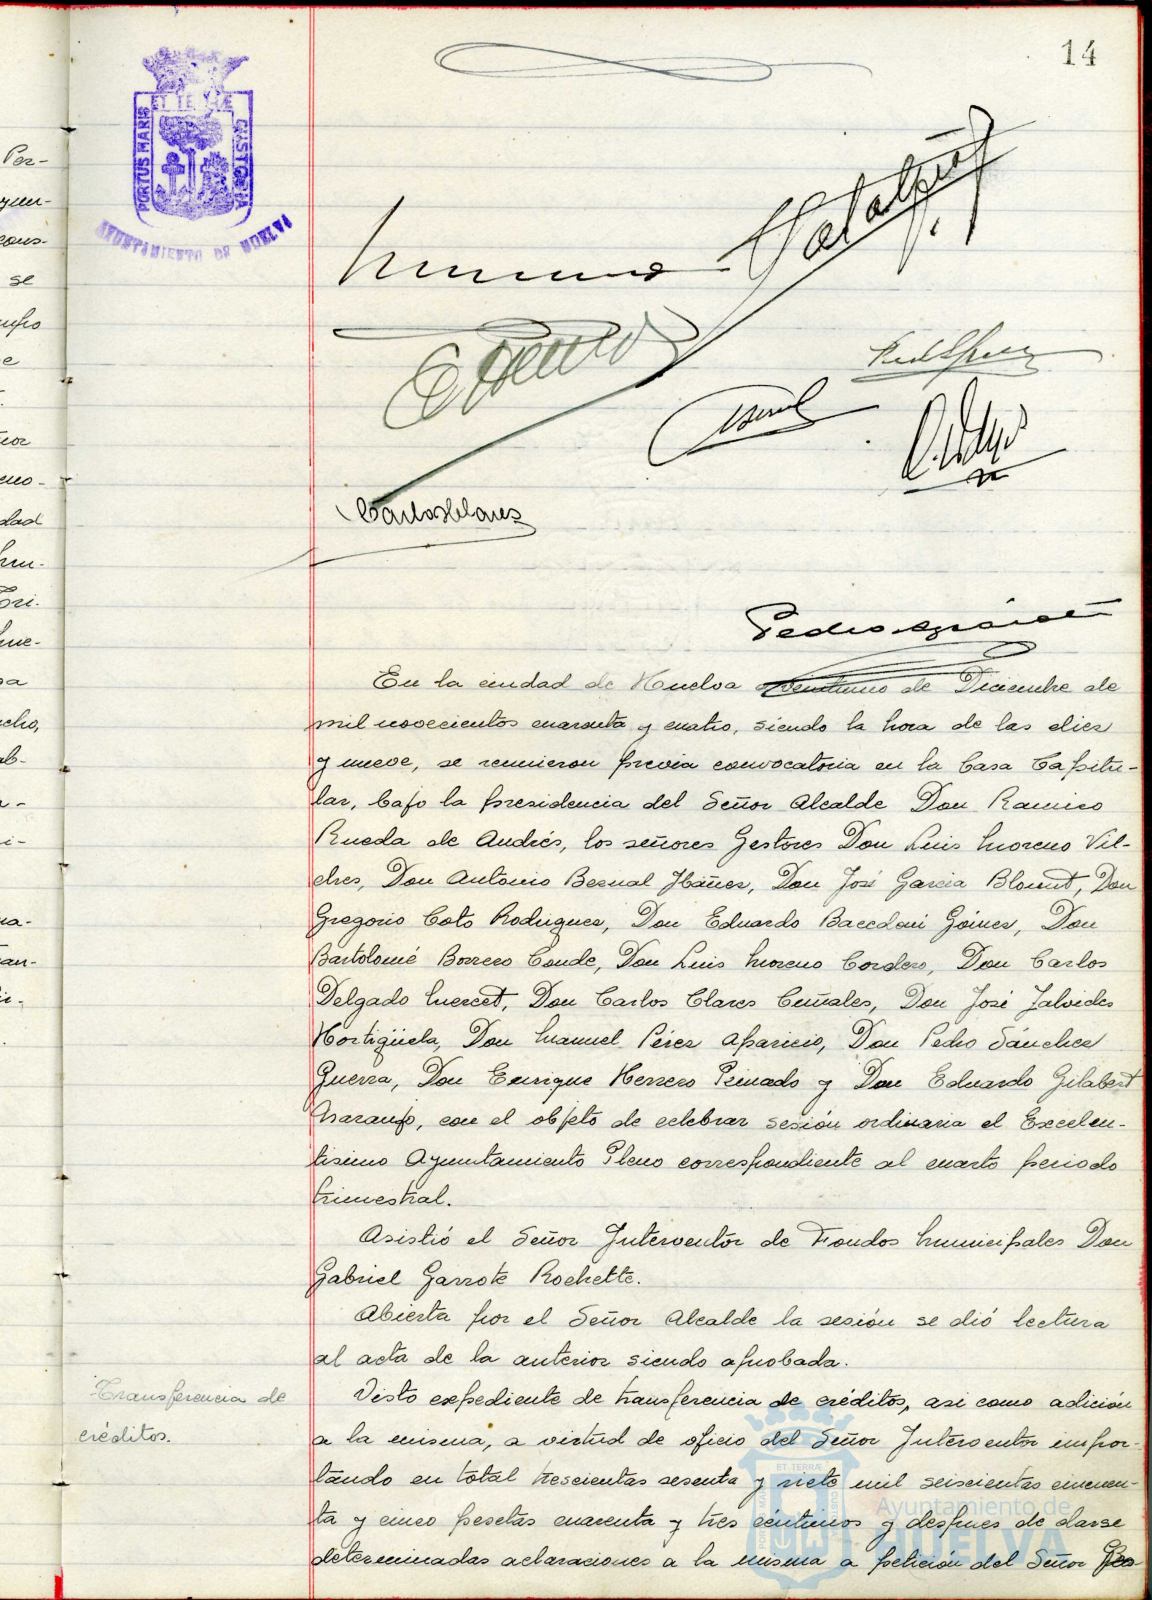 14
PORTUS MARIS
ET TERRÆ
CUSTODIA
AYUNTAMIENTO DE HUELVA
Carlos Clares
En la ciudad de Huelva a veintiuno de Diciembre de
mil novecientos cuarenta y cuatro, siendo la hora de las diez
y nueve, se reunieron previa convocatoria en la Casa Capitu-
lar, bajo la presidencia del Señor Alcalde Don Ramiro
Rueda de Andrés, los señores Gestores Don Luis Moreno Vil-
ches, Don Antonio Bernal Ibáñez, Don José Garcia Blount, Don
Gregorio Coto Rodriguez, Don Eduardo Gómez, Don
Bartolomé Borrero Conde, Don Luis Moreno Cordero, Don Carlos
Delgado Don Carlos Clares Don José
Hortigüela, Don Manuel Pérez Aparicio, Don Pedro Sánchez
Guerra, Don Enrique Herrero Peinado y Don Eduardo Gilabert
Naranjo, con el objeto de celebrar sesión ordinaria el Excelen-
tisimo Ayuntamiento Pleno correspondiente al cuarto periodo
trimestral.
Asistió el Señor Interventor de Fondos Municipales Don
Gabriel Garrote Rochette.
Abierta por el Señor Alcalde la sesión se dió lectura
al acta de la anterior siendo aprobada.
Transferencia de
créditos.
Visto expediente de transferencia de créditos, asi como adición
a la misma, a virtud de oficio del Señor Interventor impor-
tando en total trescientas sesenta y siete mil seiscientas cincuen-
ta y cinco pesetas cuarenta y tres céntimos y despues de darse
determinadas aclaraciones a la misma a petición del Señor
Ayuntamiento de
HUELVA